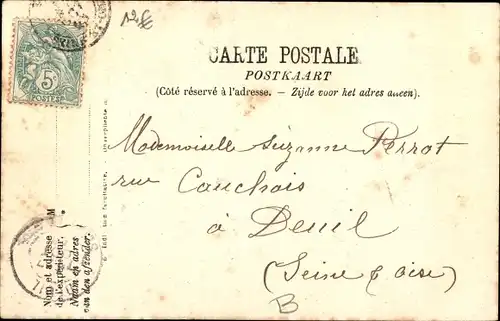 12€
5c
POSTES
CARTE POSTALE
POSTKAART
(Côté réservé à l'adresse. — Zijde voor het adres aucen).
Mademoiselle Suzanne Perrot
rue Cauchois
à Deuil
(Seine & Oise)
B
Nom et adresse
de l'expéditeur.
Naam en adres
van den afzender.